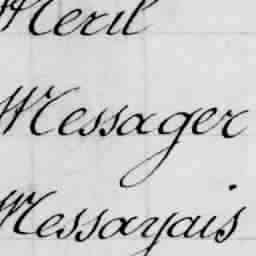 Meril
Messager
Messayais